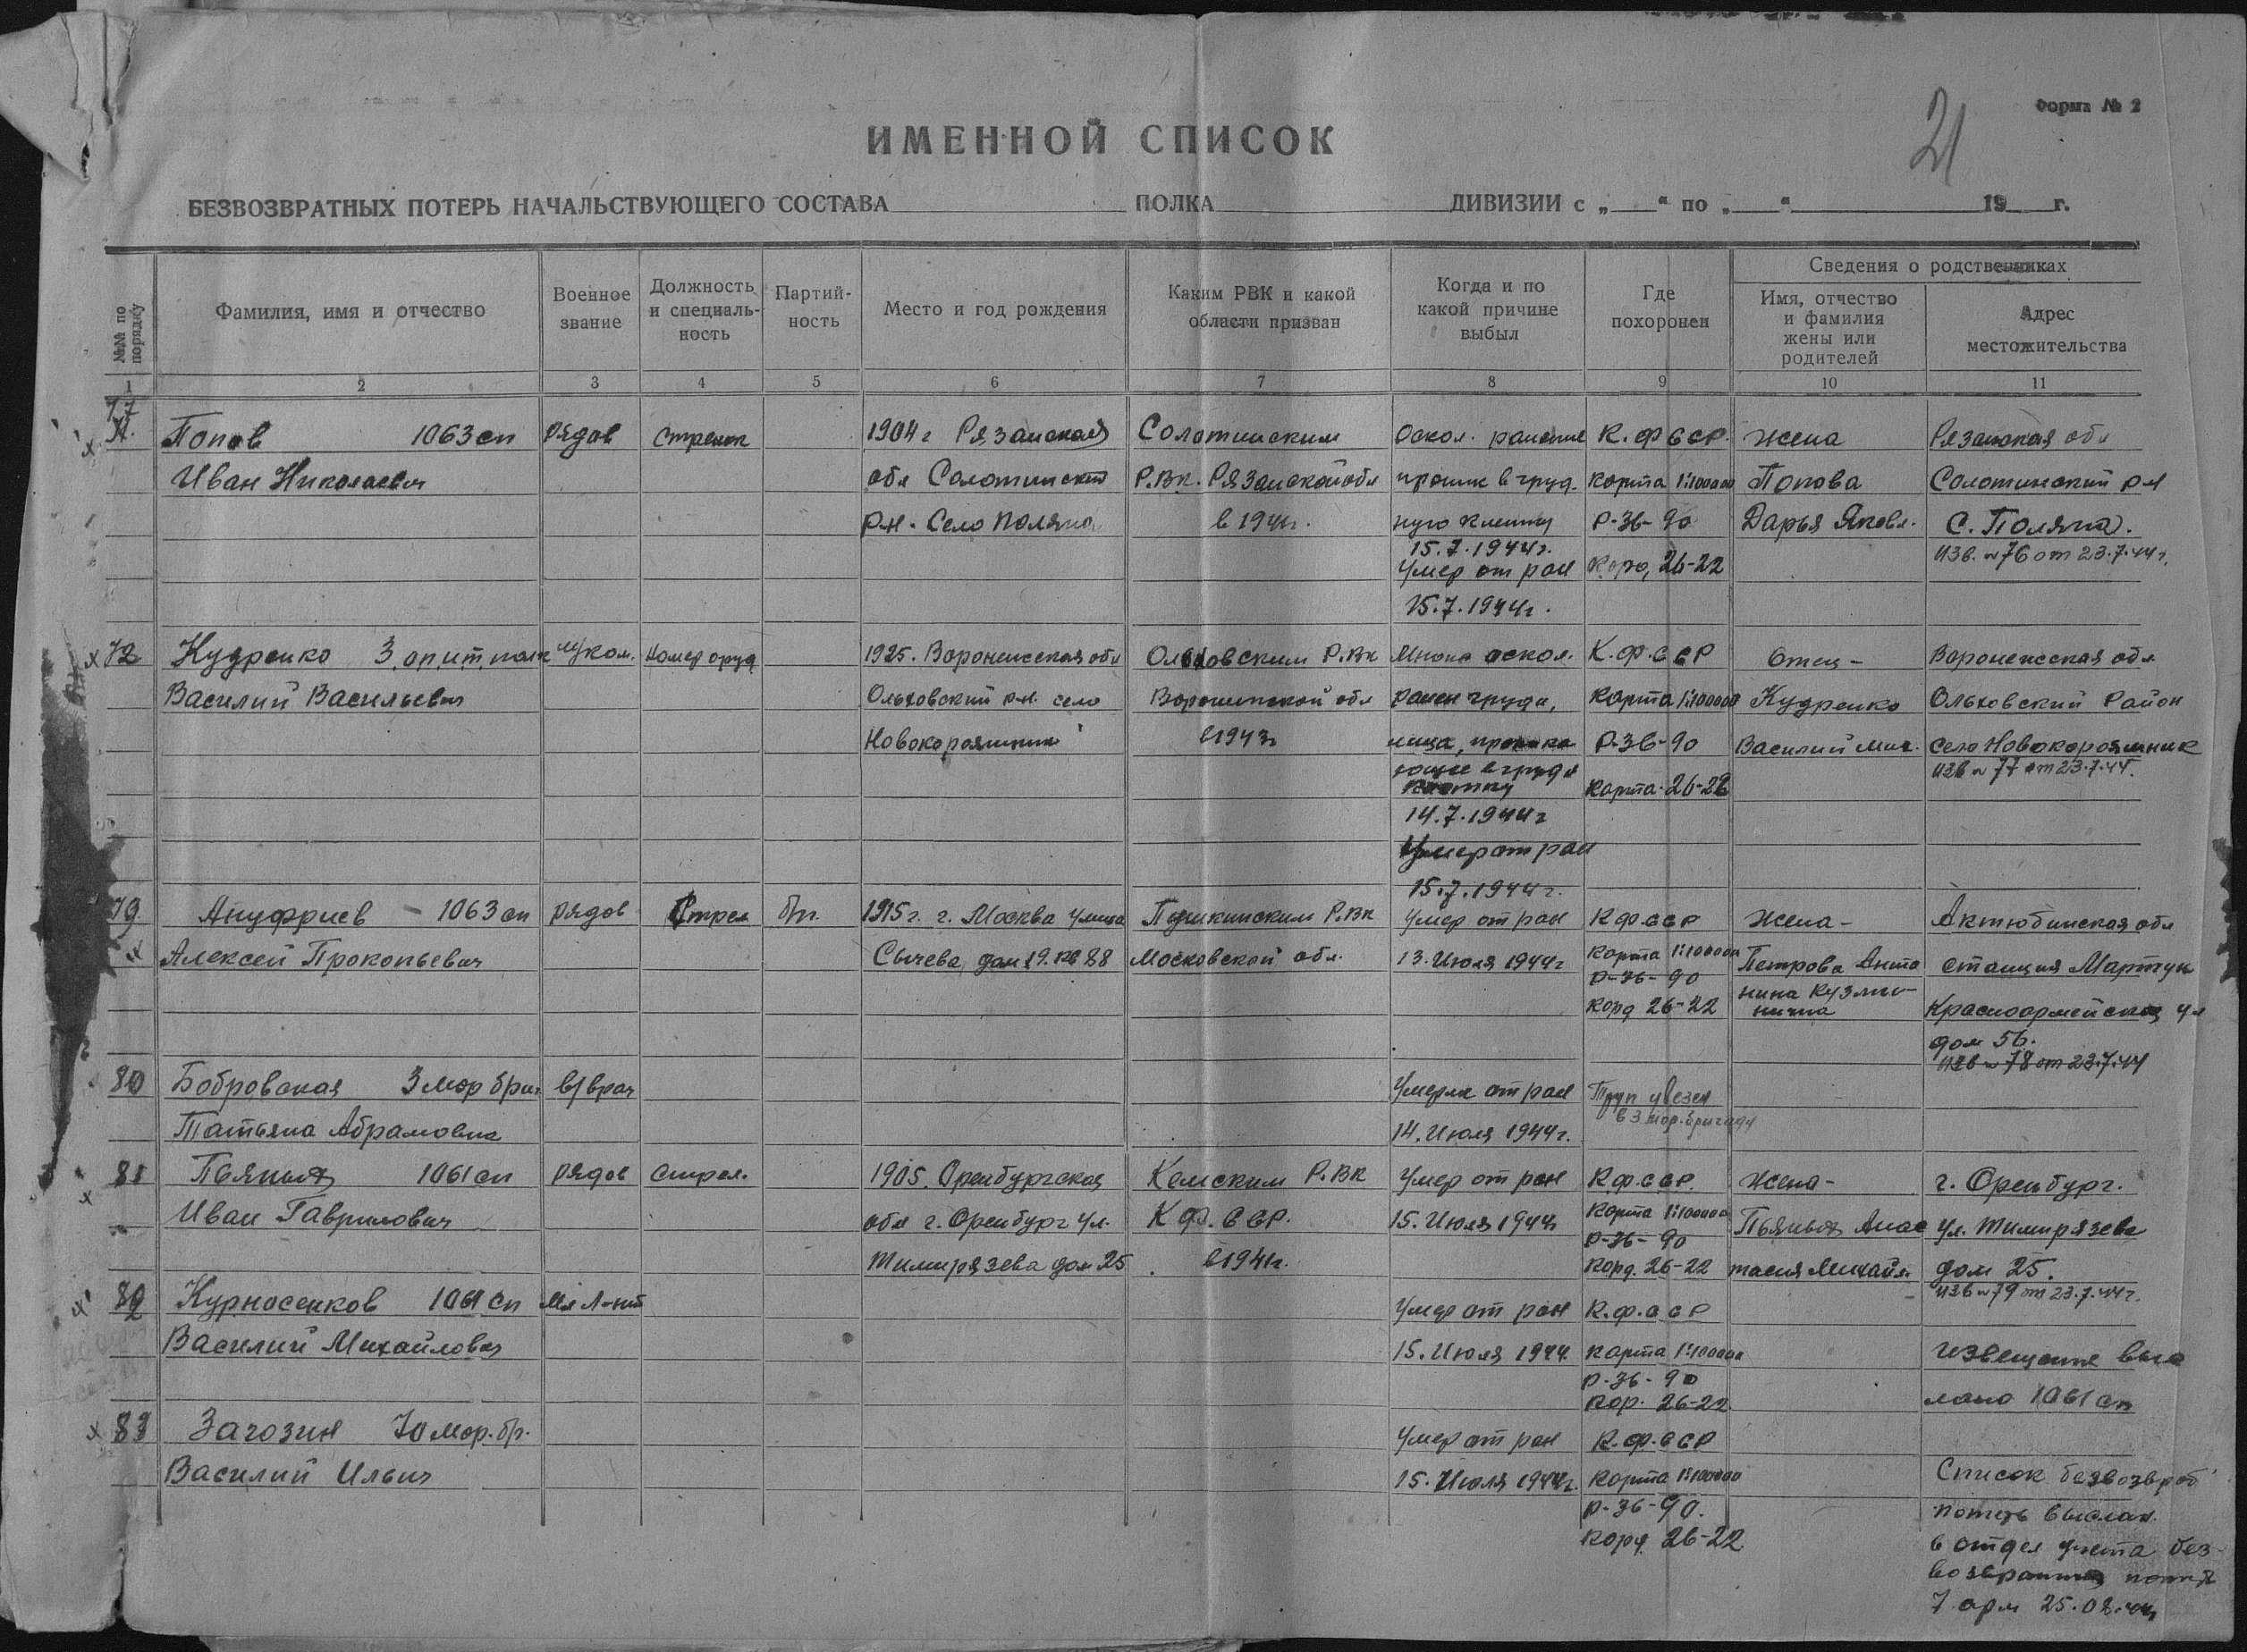 Форма № 2
21
ИМЕННОЙ СПИСОК
БЕЗВОЗВРАТНЫХ ПОТЕРЬ НАЧАЛЬСТВУЮЩЕГО СОСТАВА ПОЛКА ДИВИЗИИ с „ “ по „ “ 19 г.
№№ по порядку
Фамилия, имя и отчество
Военное звание
Должность и специальность
Партийность
Место и год рождения
Каким РВК и какой области призван
Когда и по какой причине выбыл
Где похоронен
Сведения о родственниках
Имя, отчество и фамилия жены или родителей
Адрес местожительства
1 2 3 4 5 6 7 8 9 10 11
77 Попов 1063 сп рядов стрелок 1904 г Рязанская Солотинским Оскол. ранение К.ФССР. жена Рязанская обл
Иван Николаевич обл Солотинский Р.ВК. Рязанской обл проник в груд- карта 1:100000 Попова Солотинский р-н
рн. Село Поляна в 1941г. ную клетку Р-36-90 Дарья Яковл. С. Поляна.
15.7.1944г. изв. № 76 от 23.7.44 г.
Умер от ран Корд, 26-22
15.7.1944г.
x 72 Кудренко 3 опит полк Номер оруд 1925. Воронежская обл Ольховским Р.ВК Множ оскол. К.Ф.ССР Отец - Воронежская обл
Василий Васильевич Ольховский рн. село Воронежской обл ранен груди, карта 1:100000 Кудренко Ольховский Район
в 1943г лица, проника Р-36-90 Василий Мих. село
ющее в грудн изв № 77 от 23.7.44.
клетку карта-26-22
14.7.1944г
Умер от ран
15.7.1944г.
79 Ануфриев - 1063 сп рядов Стрел б/п. 1915 г. г. Москва улица Пушкинским Р.ВК Умер от ран КФССР жена - Актюбинская обл
x Алексей Прокопьевич Сычева дом 19. кв 88 Московской обл. 13. Июля 1944г карта 1:100000 Петрова Анто станция Мартук
Р-36-90
Корд 26-22 нина Кузьми-нична Красноармейская ул
дом 56.
изв № 78 от 23.7.44
80 Бобровская 3 мор бриг в/врач Умерла от ран Труп увезен
Татьяна Абрамовна 14. Июля 1944г. в 3 мор. бригаду
81 Пьяных 1061 сп рядов стрел. 1905. Оренбургская Кемским Р.ВК Умер от ран К.Ф.ССР. жена - г. Оренбург.
x Иван Гаврилович обл г. Оренбург ул. КФ.ССР. 15. Июля 1944г карта 1:100000 Пьяных Анас ул. Тимирязева
Р-36-90
Тимирязева дом 25 в 1941г. Корд. 26-22 тасия Михайл. дом 25.
изв № 79 от 23.7.44г.
x 82 Курносенков 1061 сп Мл Л-нт Умер от ран К.Ф.ССР
Василий Михайлович 15. Июля 1944. карта 1:100000 извещение выс
Р-36-90
Кор. 26-22 лано 1061 сп
x 83 Загозин 70 мор. бр. Умер от ран К.Ф.ССР
Василий Ильич 15. Июля 1944г. карта 1:100000 Список безвозврат
Р-36-90. потерь выслан.
Корд. 26-22 в отдел учета без-
возвратных потерь
7 арм 25.08.44г